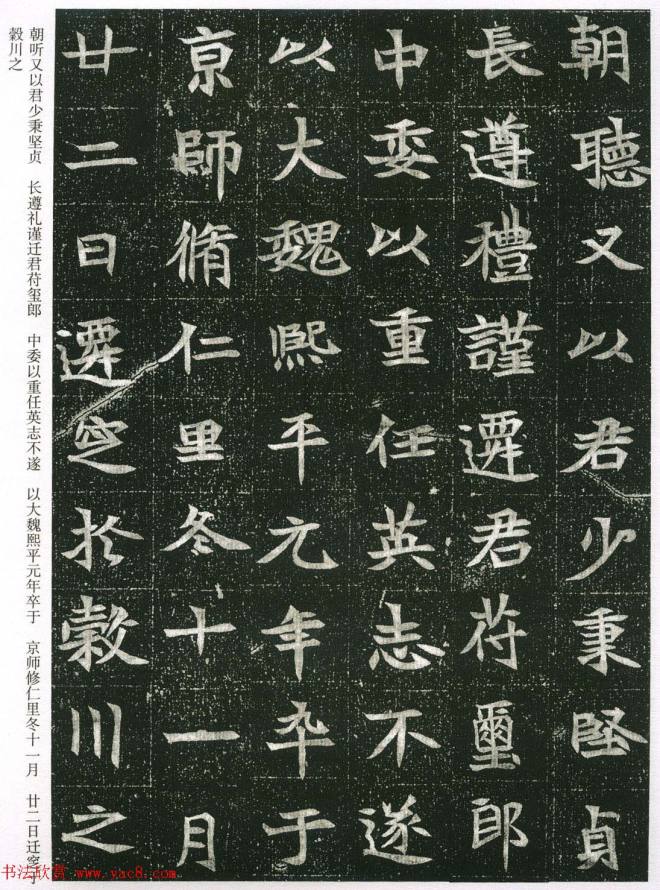 朝聽又以君少秉堅貞
長遵禮謹遷君苻璽郎
中委以重任英志不遂
以大魏熙平元年卒于
京師脩仁里冬十一月
廿二日遷窆於穀川之
朝听又以君少秉坚贞 长遵礼谨迁君苻玺郎 中委以重任英志不遂 以大魏熙平元年卒于 京师修仁里冬十一月 廿二日迁窆于
榖川之
书法欣赏 www.yac8.com